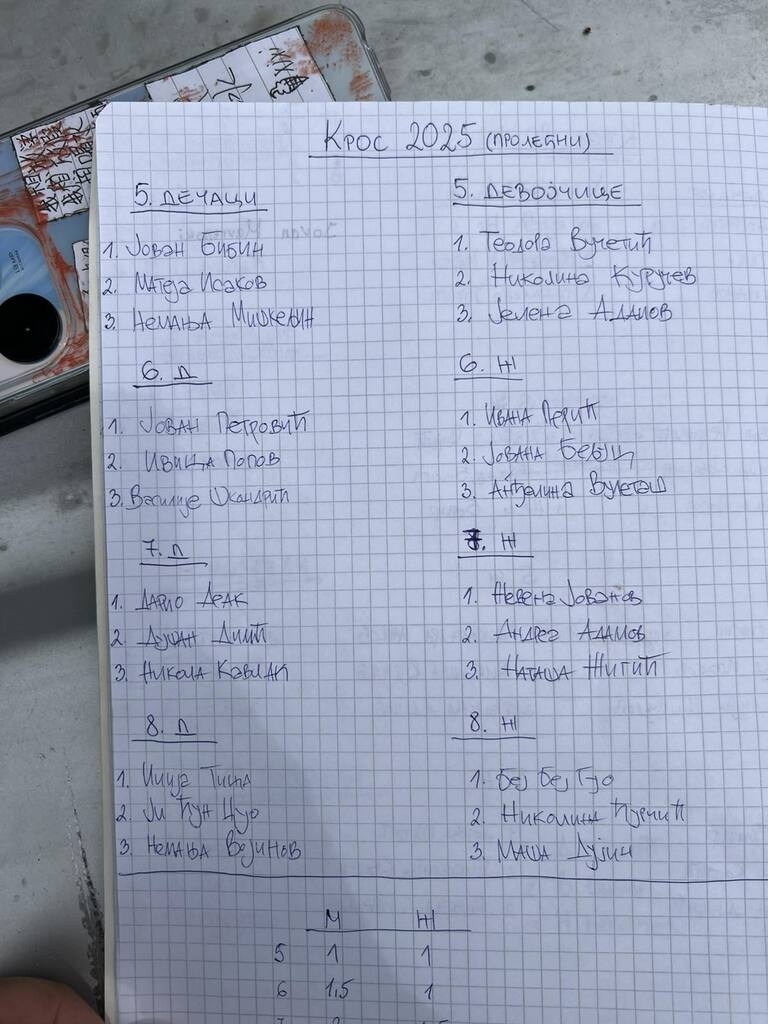 Крос 2025 (пролетни)
5. Дечаци
1. Јован Бибин
2. Матеја Исаков
3. Немања Мишкељин
6. Д
1. Јован Петровић
2. Ивица Попов
3. Василије Шкандрић
7. Д
1. Дарио Деак
2. Душан Димић
3. Никола Кавлак
8. Д
1. Илија
2. Ли Ђун Цуо
3. Немања Војинов
5. Девојчице
1. Теодора Вучетић
2. Николина Куручев
3. Јелена Адамов
6. Ж
1. Ивана Перић
2. Јована
3. Анђелина
7. Ж
1. Невена Јованов
2. Андреа Адамов
3. Наташа Житић
8. Ж
1. Беј Беј Гуо
2. Николина
3. Маша Дујин
М Ж
5 1 1
6 1,5 1